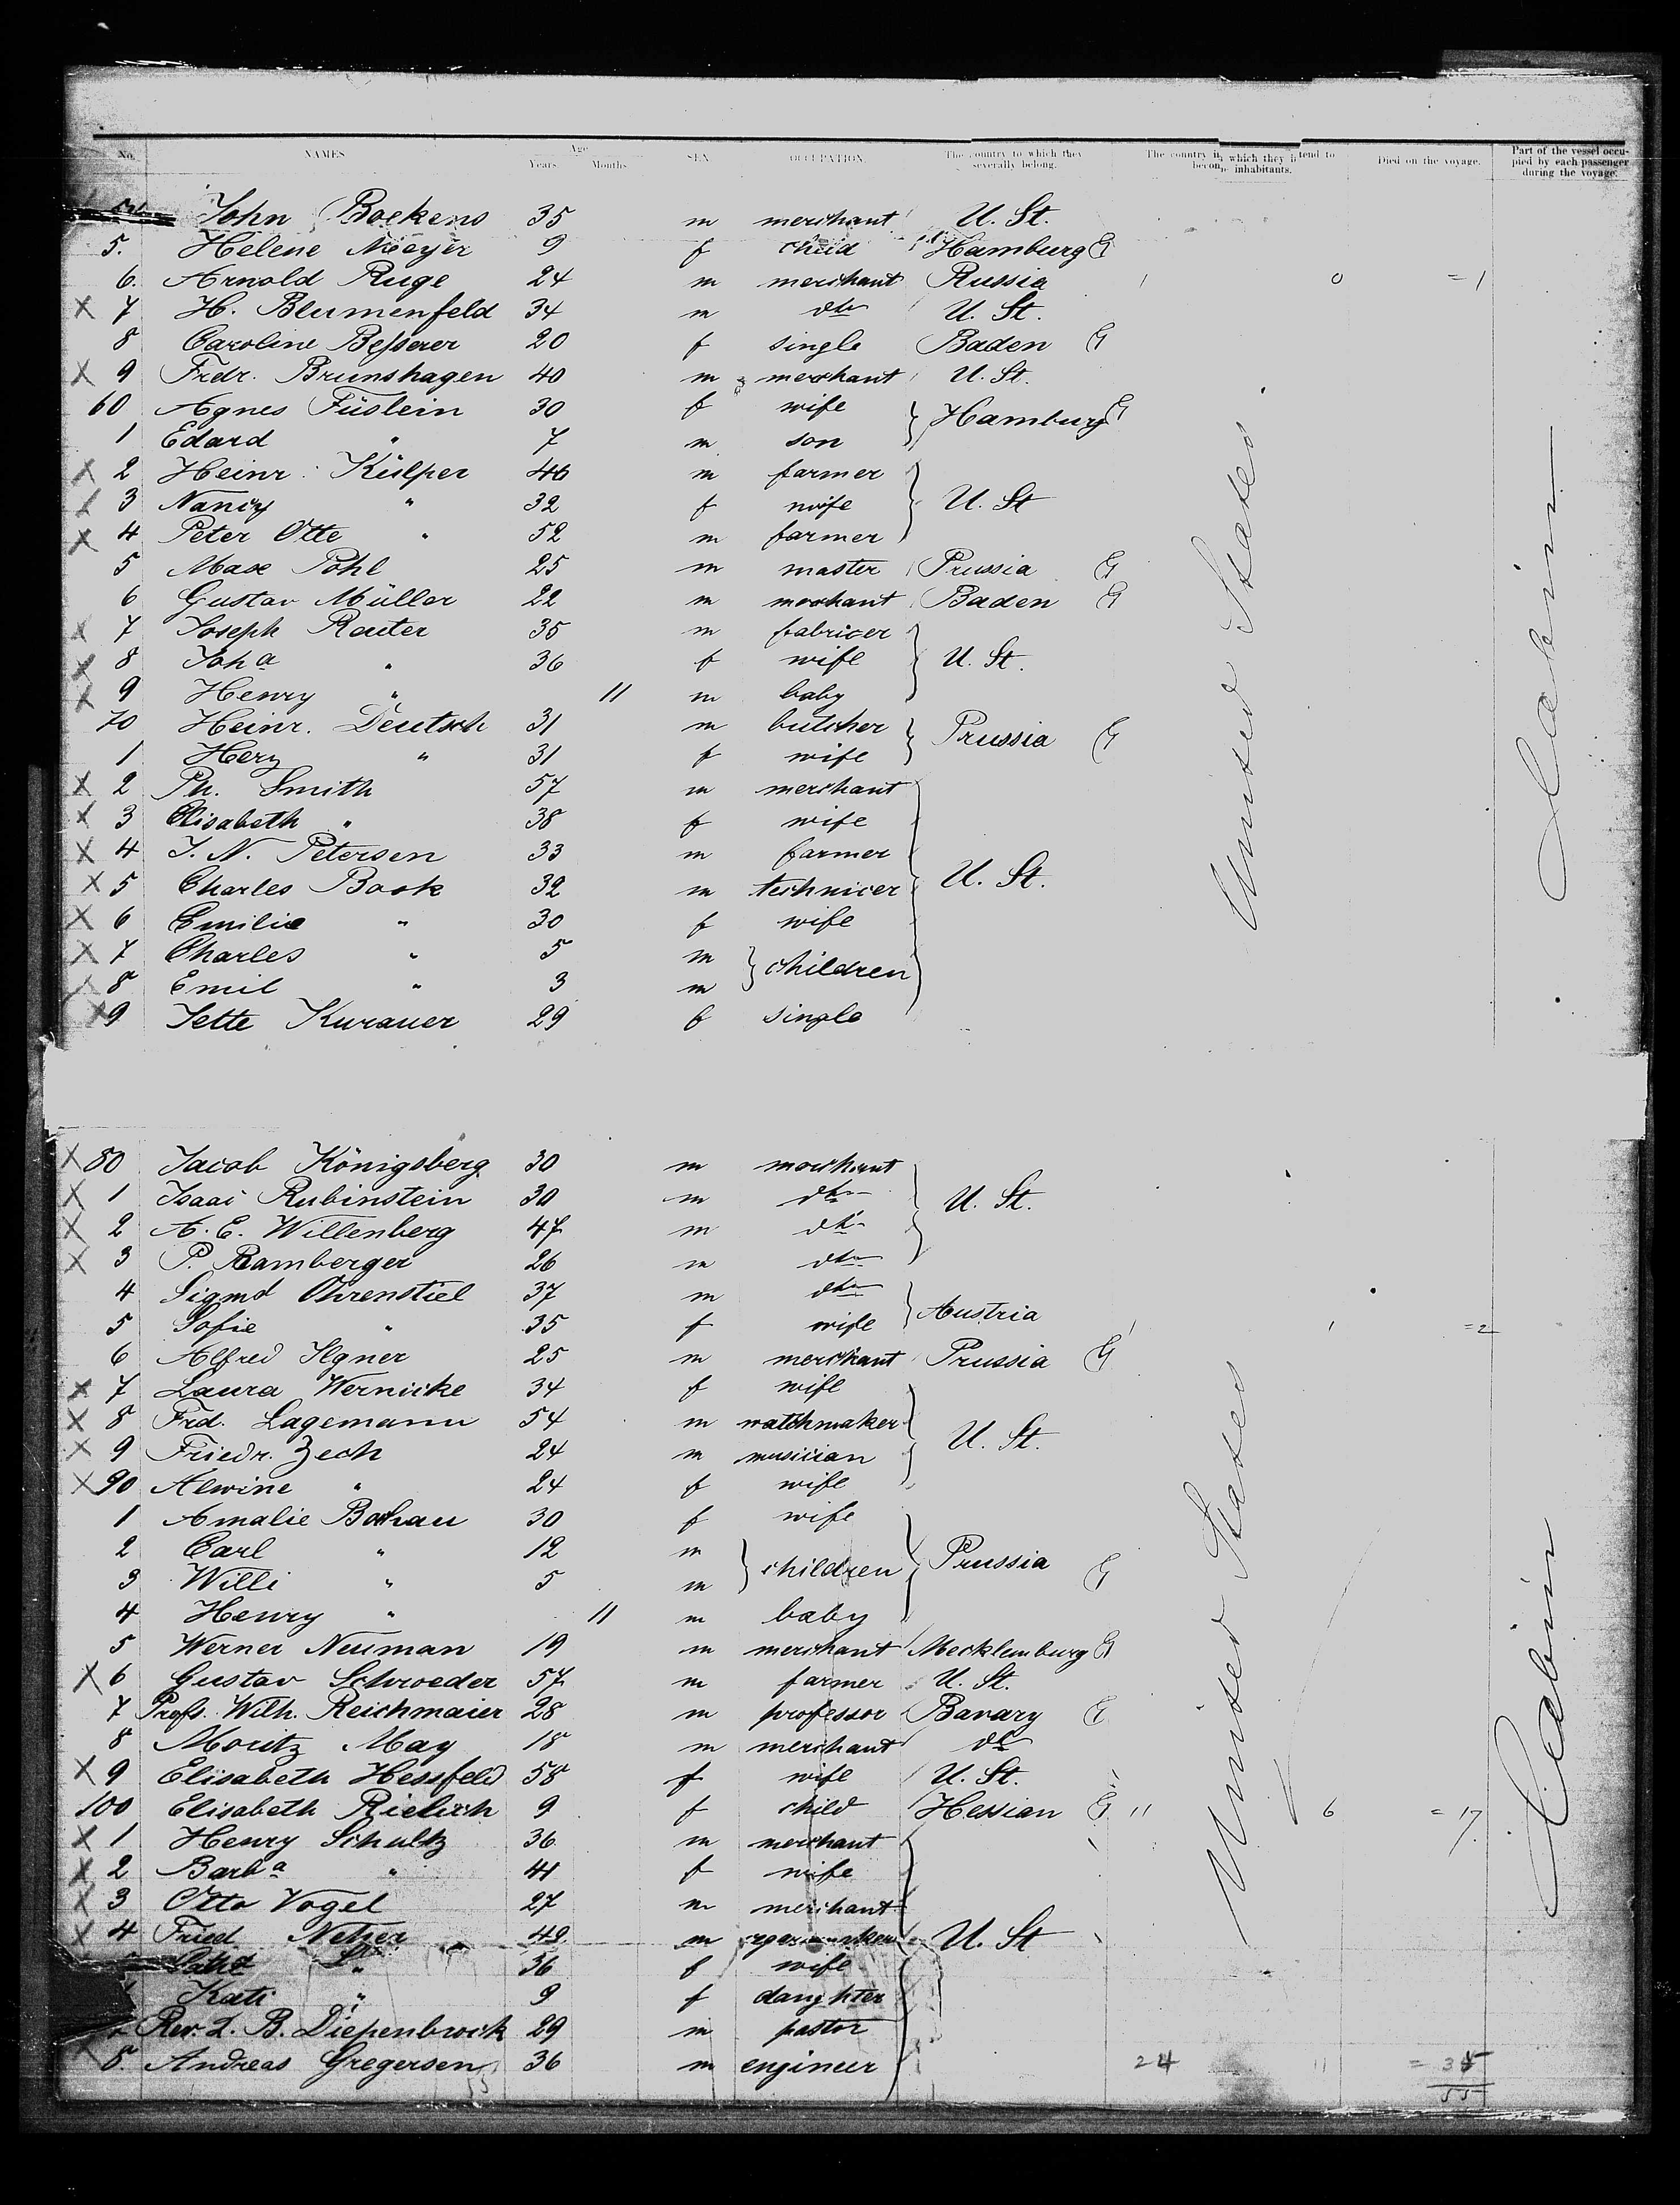 No. NAMES Age Years Months SEX OCCUPATION The country to which they severally belong. The country in which they intend to become inhabitants. Died on the voyage. Part of the vessel occupied by each passenger during the voyage.
John Boekens 35 m merchant U. St.
5. Helene Meeyer 9 f child Hamburg G
6. Arnold Ruge 24 m merchant Russia 1 0 =1
X 7 H. Blumenfeld 34 m dto U. St.
8 Caroline Besserer 20 f single Baden G
X 9 Fredr. Brunshagen 40 m merchant U. St.
60 Agnes Füslein 30 f wife } Hamburg G
1 Edard " 7 m son
X 2 Heinr. Külper 46 m farmer } U. St
X 3 Nancy " 32 f wife
X 4 Peter Otte " 52 m farmer
5 Max Pohl 25 m master Prussia G
6 Gustav Müller 22 m merchant Baden G
X 7 Joseph Reuter 35 m fabricer } U. St.
X 8 Joha " 36 f wife
X 9 Henry " 11 m baby
70 Heinr. Deutsch 31 m butcher } Prussia G
1 Herz " 31 f wife
X 2 Ph. Smith 57 m merchant
X 3 Elisabeth " 38 f wife
X 4 J. N. Petersen 33 m farmer
X 5 Charles Book 32 m technicer } U. St.
X 6 Emilie " 30 f wife
X 7 Charles " 5 m } children
X 8 Emil " 3 m
X 9 Jette Kurauer 29 f single
United States
Cabin
X 80 Jacob Königsberg 30 m merchant
X 1 Isaac Rubinstein 30 m dto } U. St.
X 2 A. E. Willenberg 47 m dto
X 3 P. Ramberger 26 m dto
4 Sigmd Ohrenstiel 37 m dto } Austria
5 Sofie " 35 f wife 1 1 =2
6 Alfred Ilgner 25 m merchant Prussia G
X 7 Laura Wernicke 34 f wife
X 8 Frd. Lagemann 54 m watchmaker } U. St.
X 9 Friedr. Zech 24 m musician
X 90 Alwine " 24 f wife
1 Amalie Bohau 30 f wife
2 Carl " 12 m } children } Prussia G
3 Willi " 5 m
4 Henry " 11 m baby
5 Werner Neuman 19 m merchant Mecklemburg G
X 6 Gustav Schroeder 57 m farmer U. St.
7 Profs. Wilh. Reichmaier 28 m professor Bavary G
8 Moritz May 18 m merchant do
X 9 Elisabeth Hessfeld 58 f wife U. St.
100 Elisabeth Rielich 9 f child Hessian G 11 6 =17
X 1 Henry Schultz 36 m merchant
X 2 Barba " 41 f wife
X 3 Otto Vogel 27 m merchant
X 4 Fried Neher 42 m } U. St
" 36 f wife
Kati " 9 f daughter
Rev. L. B. Diepenbrock 29 m pastor
X 8. Andreas Gregersen 36 m engineer 24 11 = 35
55
United States
Cabin